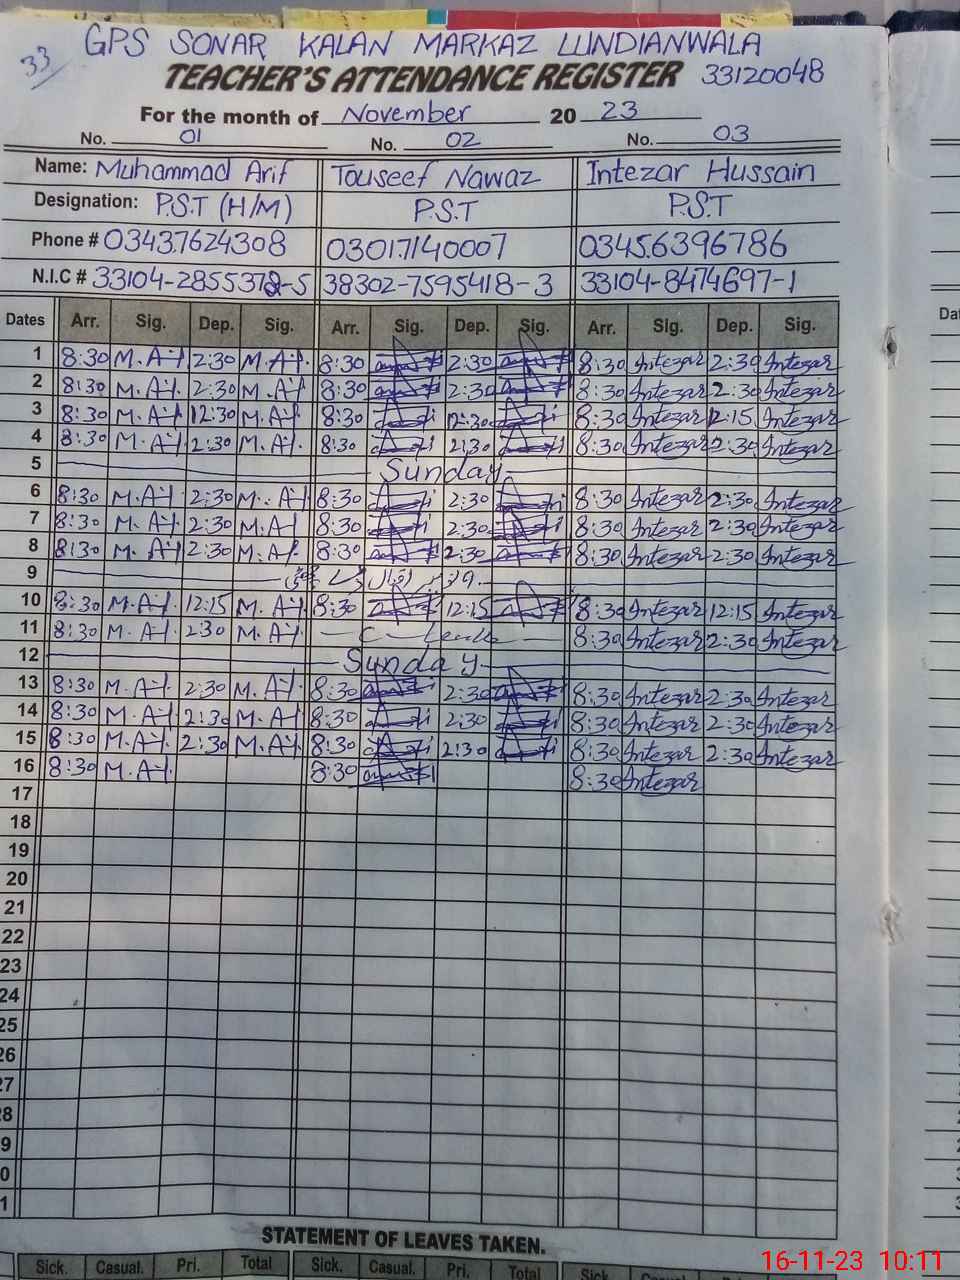 33
GPS SONAR KALAN MARKAZ LUNDIANWALA
TEACHER'S ATTENDANCE REGISTER 33120048
For the month of November 20 23
No. 01 No. 02 No. 03
Name: Muhammad Arif Touseef Nawaz Intezar Hussain
Designation: P.S.T (H/M) P.S.T P.S.T
Phone # 03437624308 03017140007 03456396786
N.I.C # 33104-2855372-5 38302-7595418-3 33104-8474697-1
Dates Arr. Sig. Dep. Sig. Arr. Sig. Dep. Sig. Arr. Sig. Dep. Sig.
1 8:30 2:30 8:30 2:30 8:30 Intezar 2:30 Intezar
2 8:30 2:30 8:30 2:30 8:30 Intezar 2:30 Intezar
3 8:30 12:30 8:30 12:30 8:30 Intezar 12:15 Intezar
4 8:30 2:30 8:30 2:30 8:30 Intezar 2:30 Intezar
5 Sunday
6 8:30 2:30 8:30 2:30 8:30 Intezar 2:30 Intezar
7 8:30 2:30 8:30 2:30 8:30 Intezar 2:30 Intezar
8 8:30 2:30 8:30 2:30 8:30 Intezar 2:30 Intezar
9
10 8:30 12:15 8:30 12:15 8:30 Intezar 12:15 Intezar
11 8:30 2:30 8:30 Intezar 2:30 Intezar
12 Sunday
13 8:30 2:30 8:30 2:30 8:30 Intezar 2:30 Intezar
14 8:30 2:30 8:30 2:30 8:30 Intezar 2:30 Intezar
15 8:30 2:30 8:30 2:30 8:30 Intezar 2:30 Intezar
16 8:30 8:30 8:30 Intezar
17
18
19
20
21
22
23
24
25
26
27
28
9
0
1
STATEMENT OF LEAVES TAKEN.
Sick. Casual. Pri. Total Sick. Casual. Pri. Total Sick. Casual. Pri. Total
16-11-23 10:11